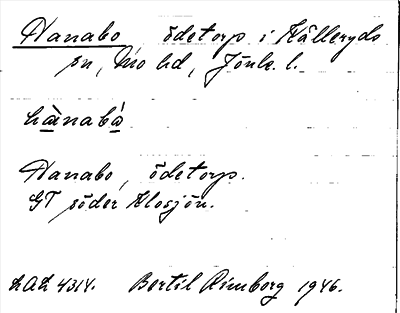 Hanabo, ödetorp i Kålleryds
sn, Mo hd, Jönk. l.
hànabó
Hanabo, ödetorp.
GT söder Klosjön.
LAL 4314. Bertil Rimborg 1946.